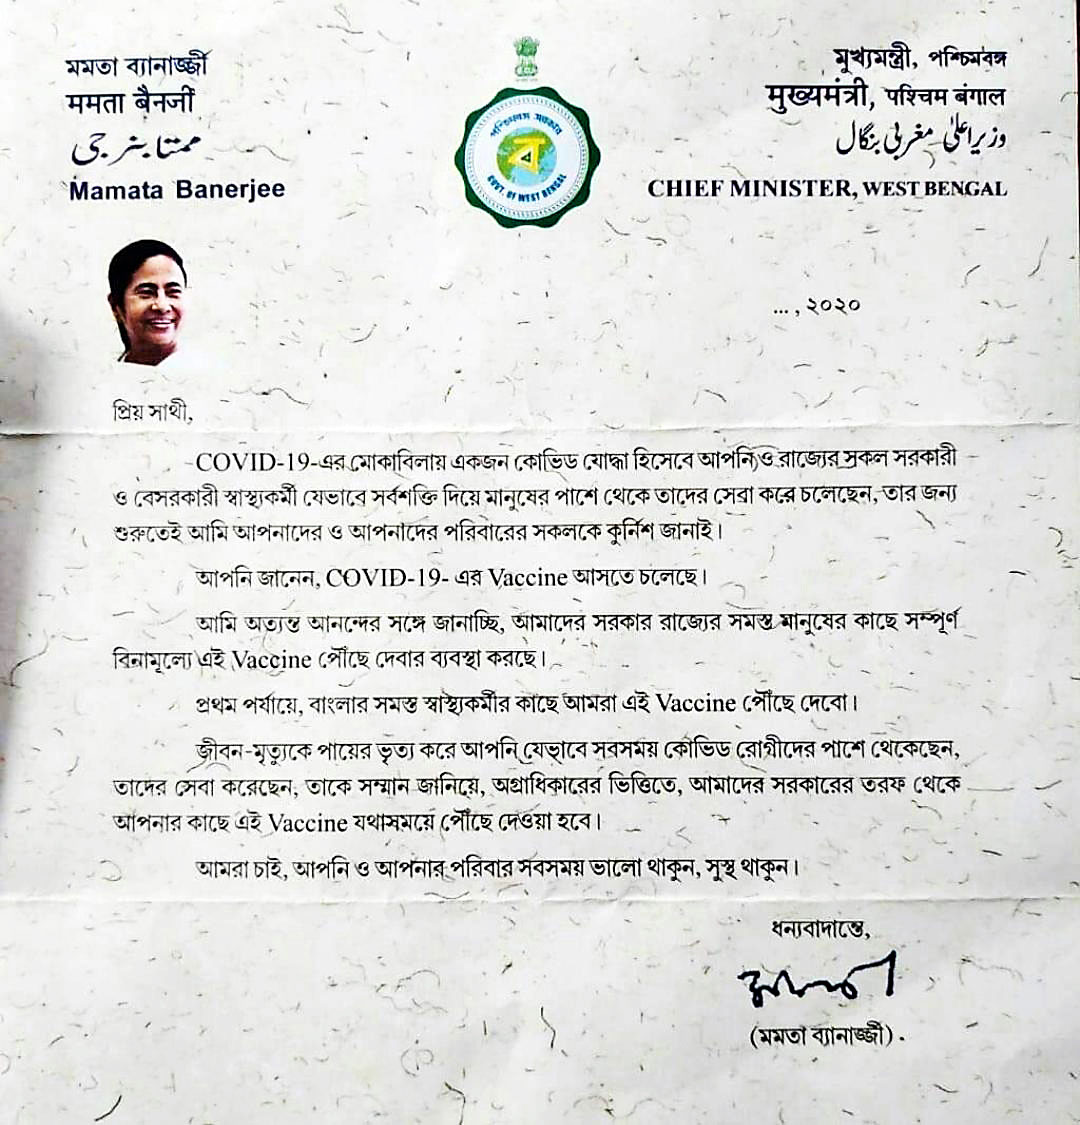 মমতা ব্যানার্জ্জী
ममता बैनर्जी
ممتا بنرجی
Mamata Banerjee
পশ্চিমবঙ্গ সরকার
ব
GOVT. OF WEST BENGAL
মুখ্যমন্ত্রী, পশ্চিমবঙ্গ
मुख्यमंत्री, पश्चिम बंगाल
وزیراعلیٰ مغربی بنگال
CHIEF MINISTER, WEST BENGAL
... , ২০২০
প্রিয় সাথী,
COVID-19-এর মোকাবিলায় একজন কোভিড যোদ্ধা হিসেবে আপনি ও রাজ্যের সকল সরকারী
ও বেসরকারী স্বাস্থ্যকর্মী যেভাবে সর্বশক্তি দিয়ে মানুষের পাশে থেকে তাদের সেবা করে চলেছেন, তার জন্য
শুরুতেই আমি আপনাদের ও আপনাদের পরিবারের সকলকে কুর্নিশ জানাই।
আপনি জানেন, COVID-19- এর Vaccine আসতে চলেছে।
আমি অত্যন্ত আনন্দের সঙ্গে জানাচ্ছি, আমাদের সরকার রাজ্যের সমস্ত মানুষের কাছে সম্পূর্ণ
বিনামূল্যে এই Vaccine পৌঁছে দেবার ব্যবস্থা করছে।
প্রথম পর্যায়ে, বাংলার সমস্ত স্বাস্থ্যকর্মীর কাছে আমরা এই Vaccine পৌঁছে দেবো।
জীবন-মৃত্যুকে পায়ের ভৃত্য করে আপনি যেভাবে সবসময় কোভিড রোগীদের পাশে থেকেছেন,
তাদের সেবা করেছেন, তাকে সম্মান জানিয়ে, অগ্রাধিকারের ভিত্তিতে, আমাদের সরকারের তরফ থেকে
আপনার কাছে এই Vaccine যথাসময়ে পৌঁছে দেওয়া হবে।
আমরা চাই, আপনি ও আপনার পরিবার সবসময় ভালো থাকুন, সুস্থ থাকুন।
ধন্যবাদান্তে,
(মমতা ব্যানার্জ্জী) .